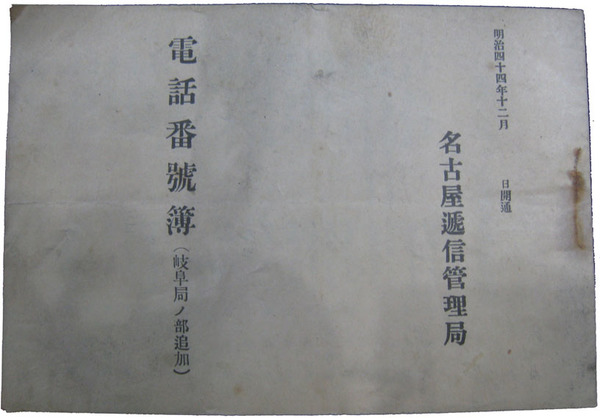 明治四十四年十二月　日開通
名古屋遞信管理局
電話番號簿（岐阜局ノ部追加）